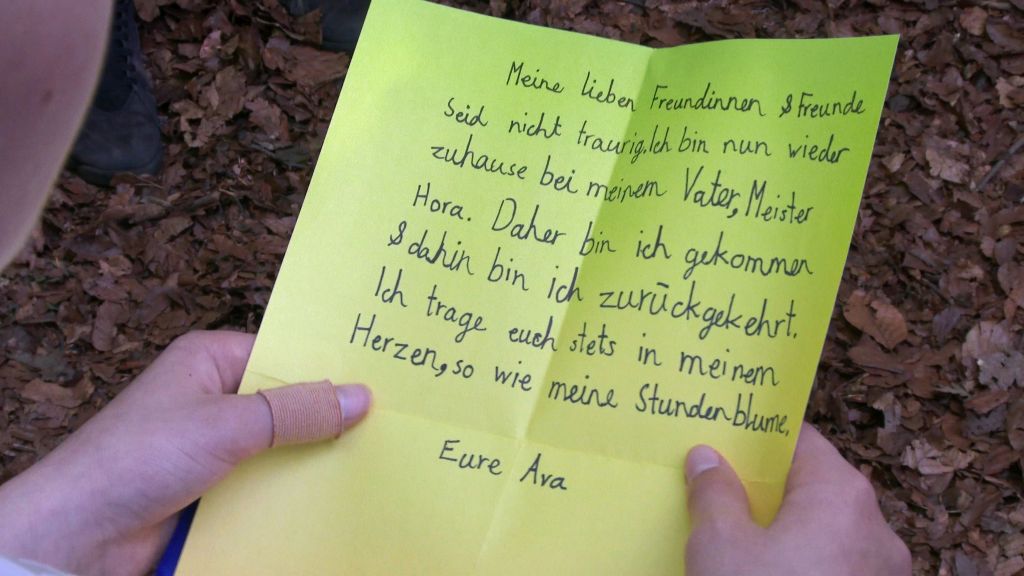 Meine lieben Freundinnen & Freunde
Seid nicht traurig. Ich bin nun wieder
zuhause bei meinem Vater, Meister
Hora. Daher bin ich gekommen
& dahin bin ich zurückgekehrt.
Ich trage euch stets in meinem
Herzen, so wie meine Stundenblume.
Eure Ava